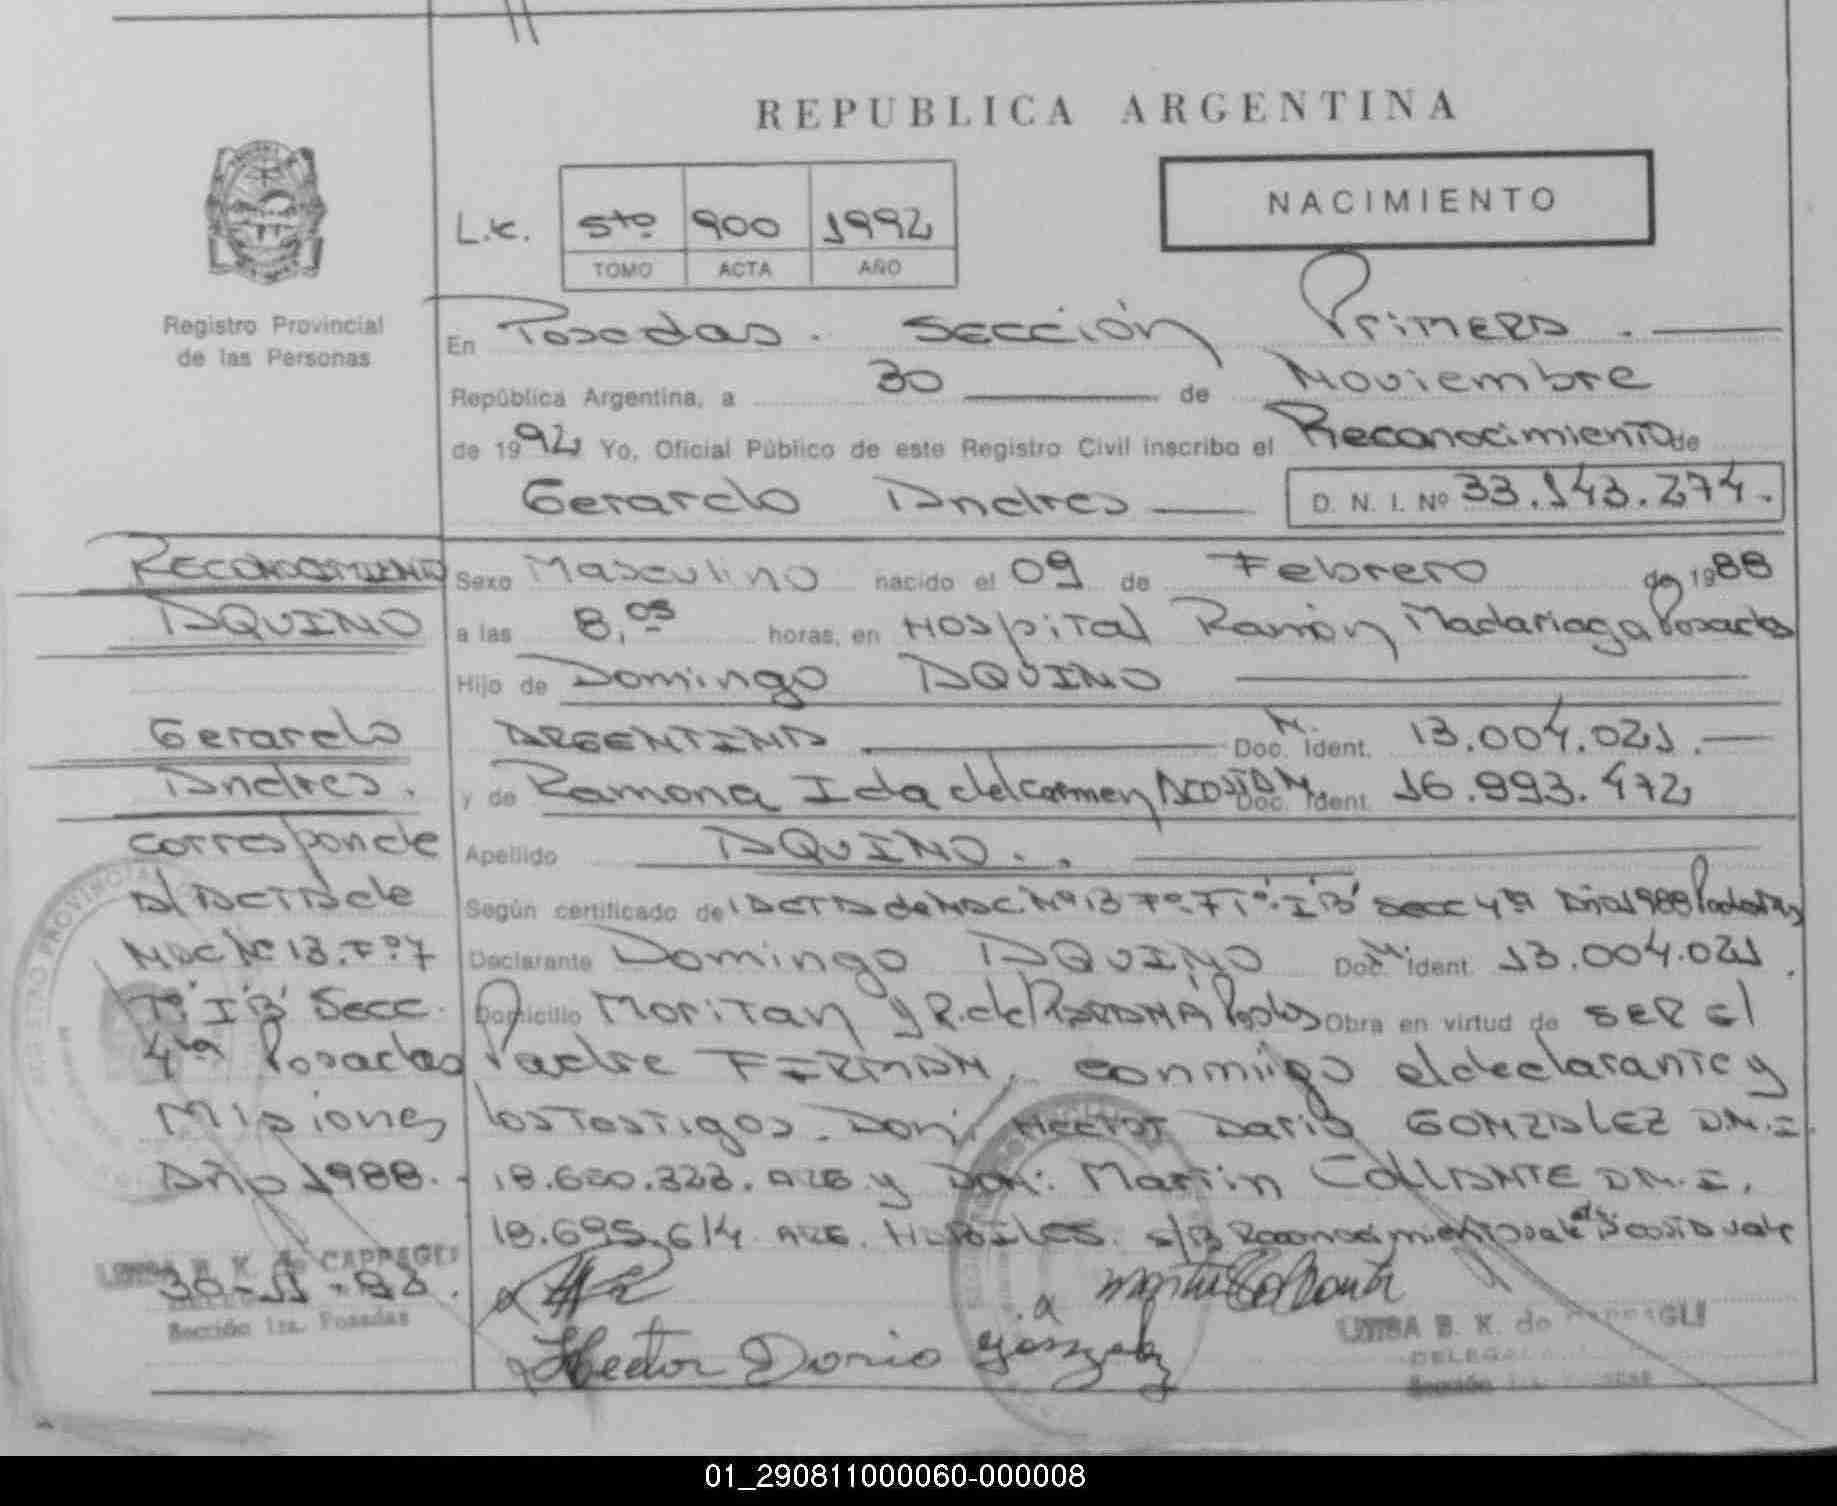 REPUBLICA ARGENTINA
NACIMIENTO
L.c. 5to 900 1992
TOMO ACTA AÑO
Registro Provincial
de las Personas
En Posadas. Sección Primera.
República Argentina, a 30 de Noviembre
de 1992 Yo, Oficial Público de este Registro Civil inscribo el Reconocimiento de
Gerardo Andres D. N. I. Nº 33.143.274.
Sexo Masculino nacido el 09 de Febrero de 1988
a las 8,05 horas, en Hospital Ramón Madariaga Posadas
Hijo de Domingo AQUINO
ARGENTINA Doc. Ident. 13.004.021.
y de Ramona Ida del Carmen ACOSTA Doc. Ident. 16.993.472
Apellido AQUINO..
Según certificado de ACTA de NAC. Nº 13 Fº. 7 Tº. I 'B' Secc 4ta Año 1988 Posadas
Declarante Domingo AQUINO Doc. Ident. 13.004.021.
Domicilio Moritan y R. de Obra en virtud de SER el
Padre FIRMAN, conmigo el declarante y
los Testigos. Don: Hector Dario GONZALEZ D.N.I.
18.650.323. ARG. y Don: Martin COLLANTE D.N.I.
18.695.614 ARG. HABILES. s/B Reconocimiento vale ACOSTA vale
RECONOCIMIENTO
AQUINO
Gerardo
Andres.
corresponde
Al ACTA de
NAC Nº 13. Fº. 7
Tº. I 'B' Secc.
4ta Posadas
Misiones
Año 1988.
30-11-92.
LUISA B. K. de CAPPAGLI
Sección 1ra. Posadas
Martin Collante
Hector Dario Gonzalez
LUISA B. K. de CAPPAGLI
DELEGADA
Sección 1ra. Posadas
01_290811000060-000008